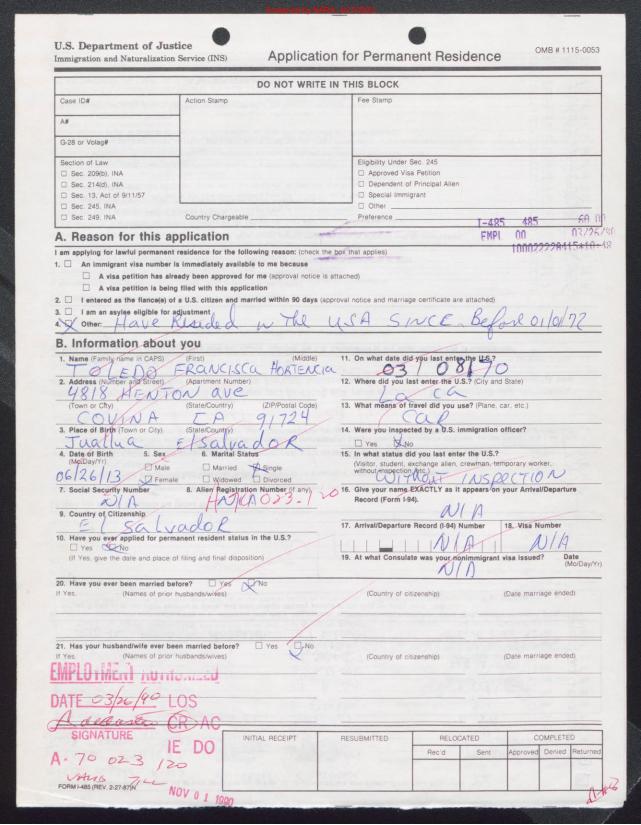 U.S. Department of Justice
Immigration and Naturalization Service (INS)
Application for Permanent Residence
OMB # 1115-0053
DO NOT WRITE IN THIS BLOCK
Case ID#
Action Stamp
Fee Stamp
A#
G-28 or Volag#
Section of Law
☐ Sec. 209(b), INA
☐ Sec. 214(d), INA
☐ Sec. 13, Act of 9/11/57
☐ Sec. 245, INA
☐ Sec. 249, INA
Country Chargeable
Eligibility Under Sec. 245
☐ Approved Visa Petition
☐ Dependent of Principal Alien
☐ Special Immigrant
☐ Other
Preference
I-485 485 60.00
EMPL 00 03/26/90
A. Reason for this application
I am applying for lawful permanent residence for the following reason: (check the box that applies)
1. ☐ An immigrant visa number is immediately available to me because
☐ A visa petition has already been approved for me (approval notice is attached)
☐ A visa petition is being filed with this application
2. ☐ I entered as the fiance(e) of a U.S. citizen and married within 90 days (approval notice and marriage certificate are attached)
3. ☐ I am an asylee eligible for adjustment
4. ☒ Other: Have Resided in The USA SINCE Before 01/01/72
B. Information about you
1. Name (Family name in CAPS) (First) (Middle)
TOLEDO FRANCISCA HORTENCIA
2. Address (Number and Street) (Apartment Number)
4818 HENTON ave
(Town or City) (State/Country) (ZIP/Postal Code)
COVINA CA 91724
3. Place of Birth (Town or City) (State/Country)
Juallua El Salvador
4. Date of Birth (Mo/Day/Yr)
06/26/13
5. Sex
☐ Male
☒ Female
6. Marital Status
☐ Married ☒ Single
☐ Widowed ☐ Divorced
7. Social Security Number
N/A
8. Alien Registration Number (if any)
9. Country of Citizenship
El Salvador
10. Have you ever applied for permanent resident status in the U.S.?
☐ Yes ☒ No
(If Yes, give the date and place of filing and final disposition)
11. On what date did you last enter the U.S.?
03/08/70
12. Where did you last enter the U.S.? (City and State)
La Ca
13. What means of travel did you use? (Plane, car, etc.)
Car
14. Were you inspected by a U.S. immigration officer?
☐ Yes ☒ No
15. In what status did you last enter the U.S.?
(Visitor, student, exchange alien, crewman, temporary worker, without inspection, etc.)
Without INSPECTION
16. Give your name EXACTLY as it appears on your Arrival/Departure Record (Form I-94).
N/A
17. Arrival/Departure Record (I-94) Number
N/A
18. Visa Number
N/A
19. At what Consulate was your nonimmigrant visa issued? Date (Mo/Day/Yr)
N/A
20. Have you ever been married before? ☐ Yes ☒ No
If Yes, (Names of prior husbands/wives) (Country of citizenship) (Date marriage ended)
21. Has your husband/wife ever been married before? ☐ Yes ☒ No
If Yes, (Names of prior husbands/wives) (Country of citizenship) (Date marriage ended)
EMPLOYMENT AUTHORIZED
DATE 03/26/90 LOS
CR AC
SIGNATURE
IE DO
A- 70 023 120
FORM I-485 (REV. 2-27-87)N
NOV 01 1990
INITIAL RECEIPT
RESUBMITTED
RELOCATED
Rec'd
Sent
COMPLETED
Approved
Denied
Returned